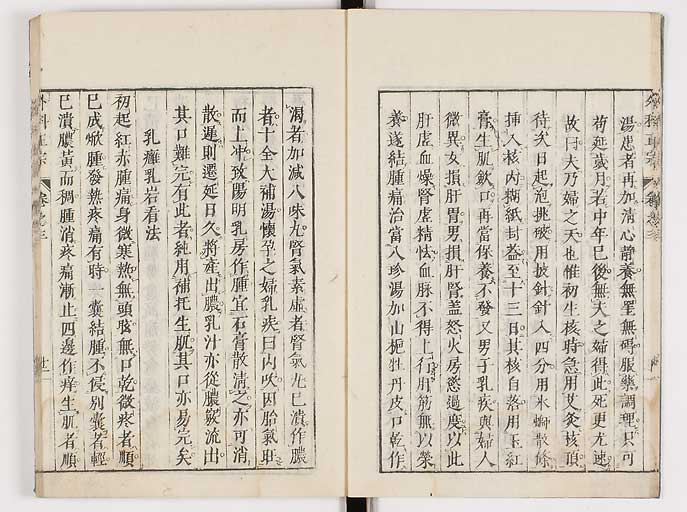 湯患者再加清心靜養無罣無碍服藥調理只可
苟延歲月若中年已後無夫之婦得此死更尤速
故曰夫乃婦之天也惟初生核時急用艾灸核頂
待次日起泡挑破用披針針入四分用氷螄散條
挿入核內糊紙封葢至十三日其核自落用玉紅
膏生肌歛口再當保養不發又男子乳疾與婦人
微異女損肝胃男損肝腎盖怒火房慾過度以此
肝虛血燥腎虛精怯血脉不得上行肝筋無以榮
養遂結腫痛治當八珍湯加山梔牡丹皮口乾作
渴者加減八味丸腎氣素虛者腎氣丸已潰作膿
者十全大補湯懷孕之婦乳疾曰內吹因胎氣旺
而上冲致陽明乳房作腫宜石膏散清之亦可消
散遲則遷延日久將產出膿乳汁亦從膿竅流出
其口難完有此者純用補托生肌其口亦易完矣
乳癰乳岩看法
初起紅赤腫痛身微寒熱無頭眩無口乾微疼者順
已成焮腫發熱疼痛有時一囊結腫不侵別囊者輕
已潰膿黃而稠腫消疼痛漸止四邊作痒生肌者順
外科正宗
卷之三